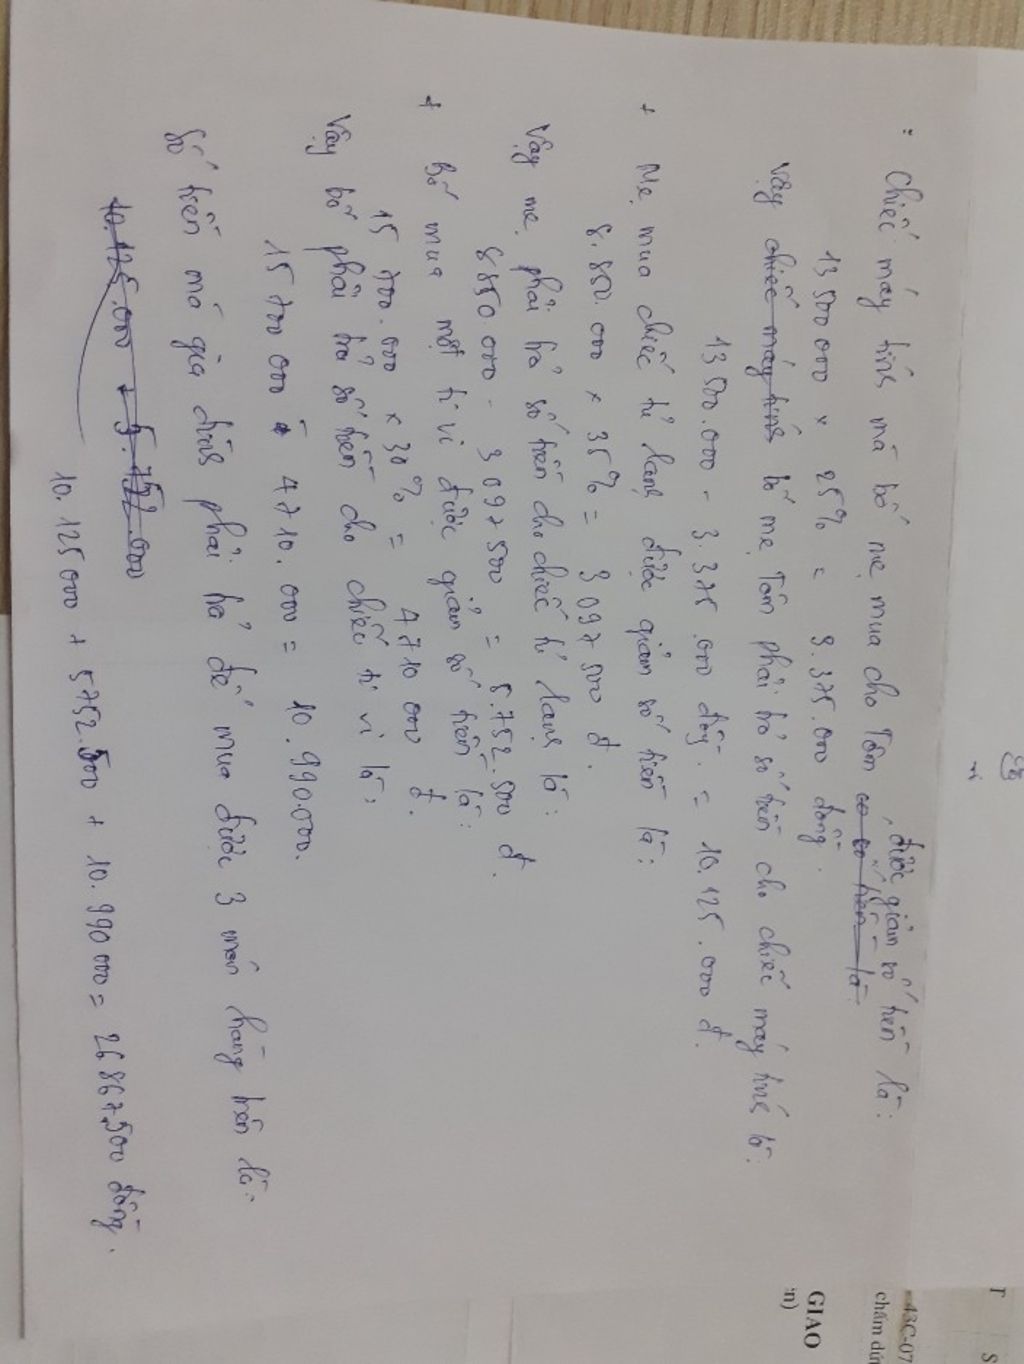 : Chiếc máy tính mà bố mẹ mua cho Tâm được giảm số tiền là:
13 500 000 × 25% = 3.375.000 đồng.
Vậy chiếc máy tính bố mẹ Tâm phải trả số tiền cho chiếc máy tính là:
13 500.000 - 3.375.000 đồng. = 10.125.000 đ.
+ Mẹ mua chiếc tủ lạnh được giảm số tiền là:
8.850.000 × 35% = 3 097 500 đ.
Vậy mẹ phải trả số tiền cho chiếc tủ lạnh là:
8 850.000 - 3 097 500 = 5.752.500 đ.
+ Bố mua một ti vi được giảm số tiền là:
15 700.000 × 30% = 4 710 000 đ.
Vậy bố phải trả số tiền cho chiếc ti vi là:
15 700 000 - 4 710.000 = 10.990.000.
Số tiền mà gia đình phải trả để mua được 3 món hàng trên là:
10.125.000 + 5.752.000
10.125 000 + 5 752.500 + 10.990 000 = 26 867.500 đồng.
43C-07
chấm dứ
GIAO